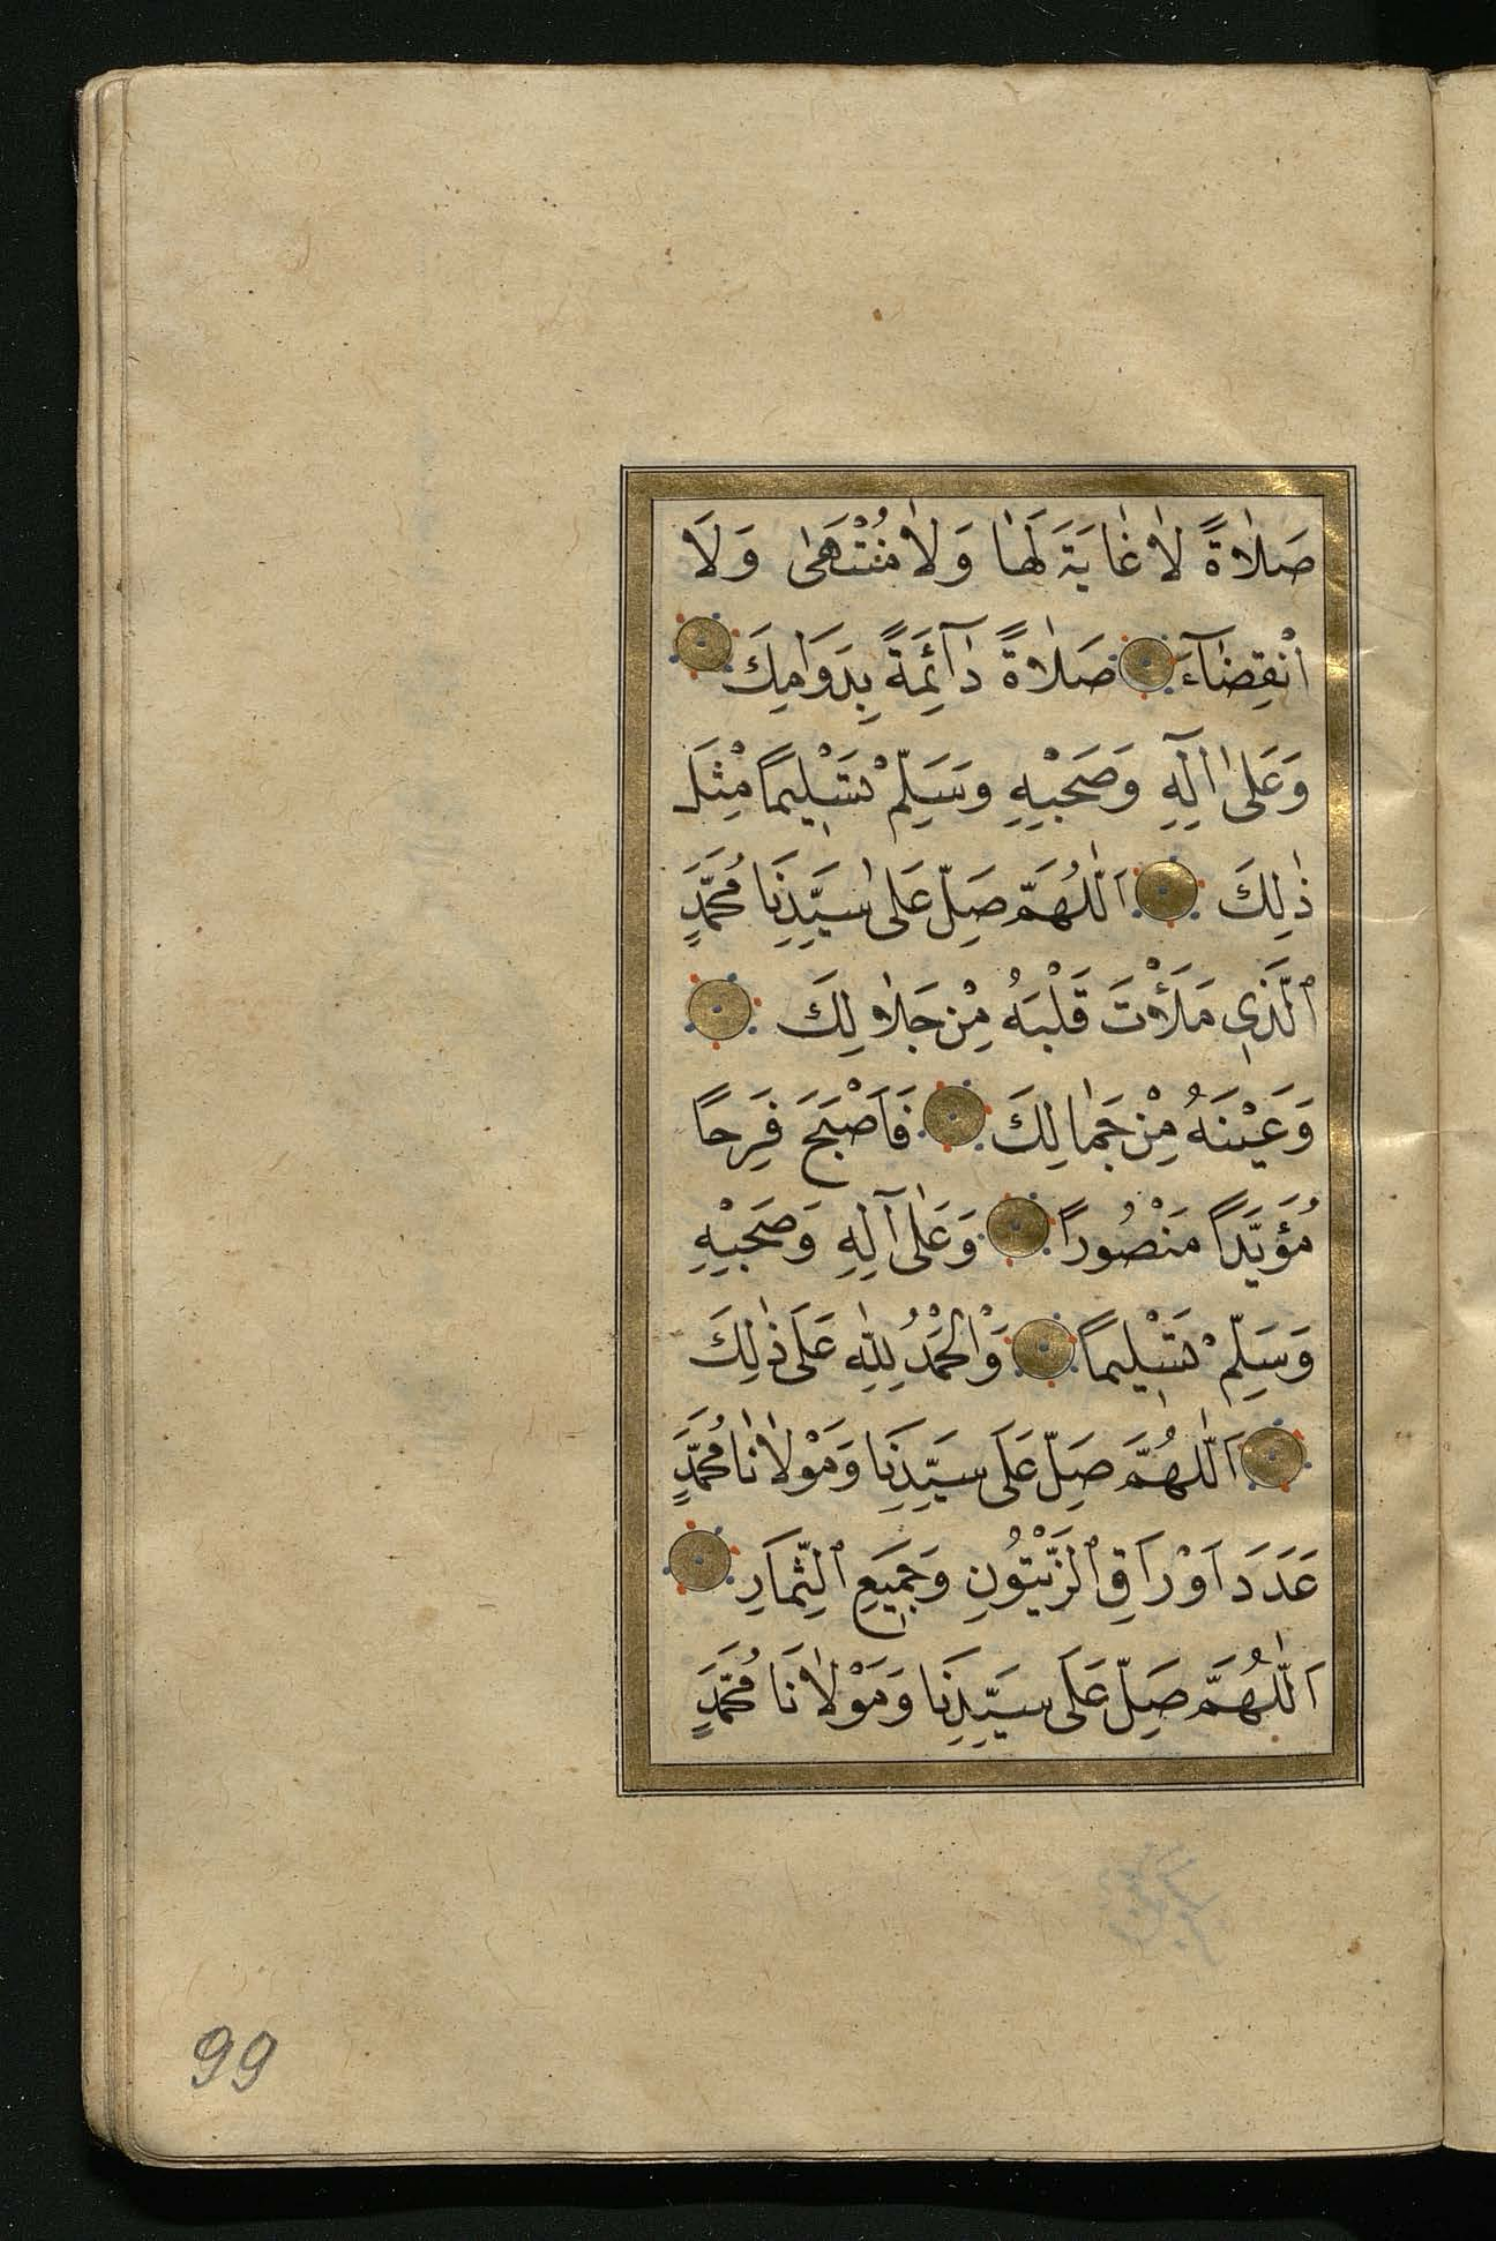 صَلَاةً لَا غَايَةَ لَهَا وَلَا مُنْتَهَى وَلَا
انْقِضَاءَ صَلَاةً دَآئِمَةً بِدَوَامِكَ
وَعَلَى اٰلِهِ وَصَحْبِهِ وَسَلِّمْ تَسْلِيمًا مِثْلَ
ذٰلِكَ اَللّٰهُمَّ صَلِّ عَلَى سَيِّدِنَا مُحَمَّدٍ
الَّذِي مَلَأْتَ قَلْبَهُ مِنْ جَلَالِكَ
وَعَيْنَهُ مِنْ جَمَالِكَ فَاَصْبَحَ فَرِحًا
مُؤَيَّدًا مَنْصُورًا وَعَلَى آلِهِ وَصَحْبِهِ
وَسَلِّمْ تَسْلِيمًا وَالْحَمْدُ لِلّٰهِ عَلَى ذٰلِكَ
اَللّٰهُمَّ صَلِّ عَلَى سَيِّدِنَا وَمَوْلَانَا مُحَمَّدٍ
عَدَدَ اَوْرَاقِ الزَّيْتُونِ وَجَمِيعِ الثِّمَارِ
اَللّٰهُمَّ صَلِّ عَلَى سَيِّدِنَا وَمَوْلَانَا مُحَمَّدٍ
99